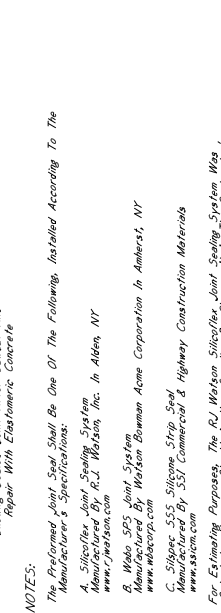 Repair With Elastomeric Concrete
NOTES:
The Preformed Joint Seal Shall Be One Of The Following, Installed According To The
Manufacturer's Specifications:
A. Silicoflex Joint Sealing System
Manufactured By R.J. Watson, Inc. In Alden, NY
www.rjwatson.com
B. Wabo SPS Joint System
Manufactured By Watson Bowman Acme Corporation In Amherst, NY
www.wbacorp.com
C. Silspec SSS Silicone Strip Seal
Manufactured By SSI Commercial & Highway Construction Materials
www.ssicm.com
For Estimating Purposes, The R.J. Watson Silicoflex Joint Sealing System Was